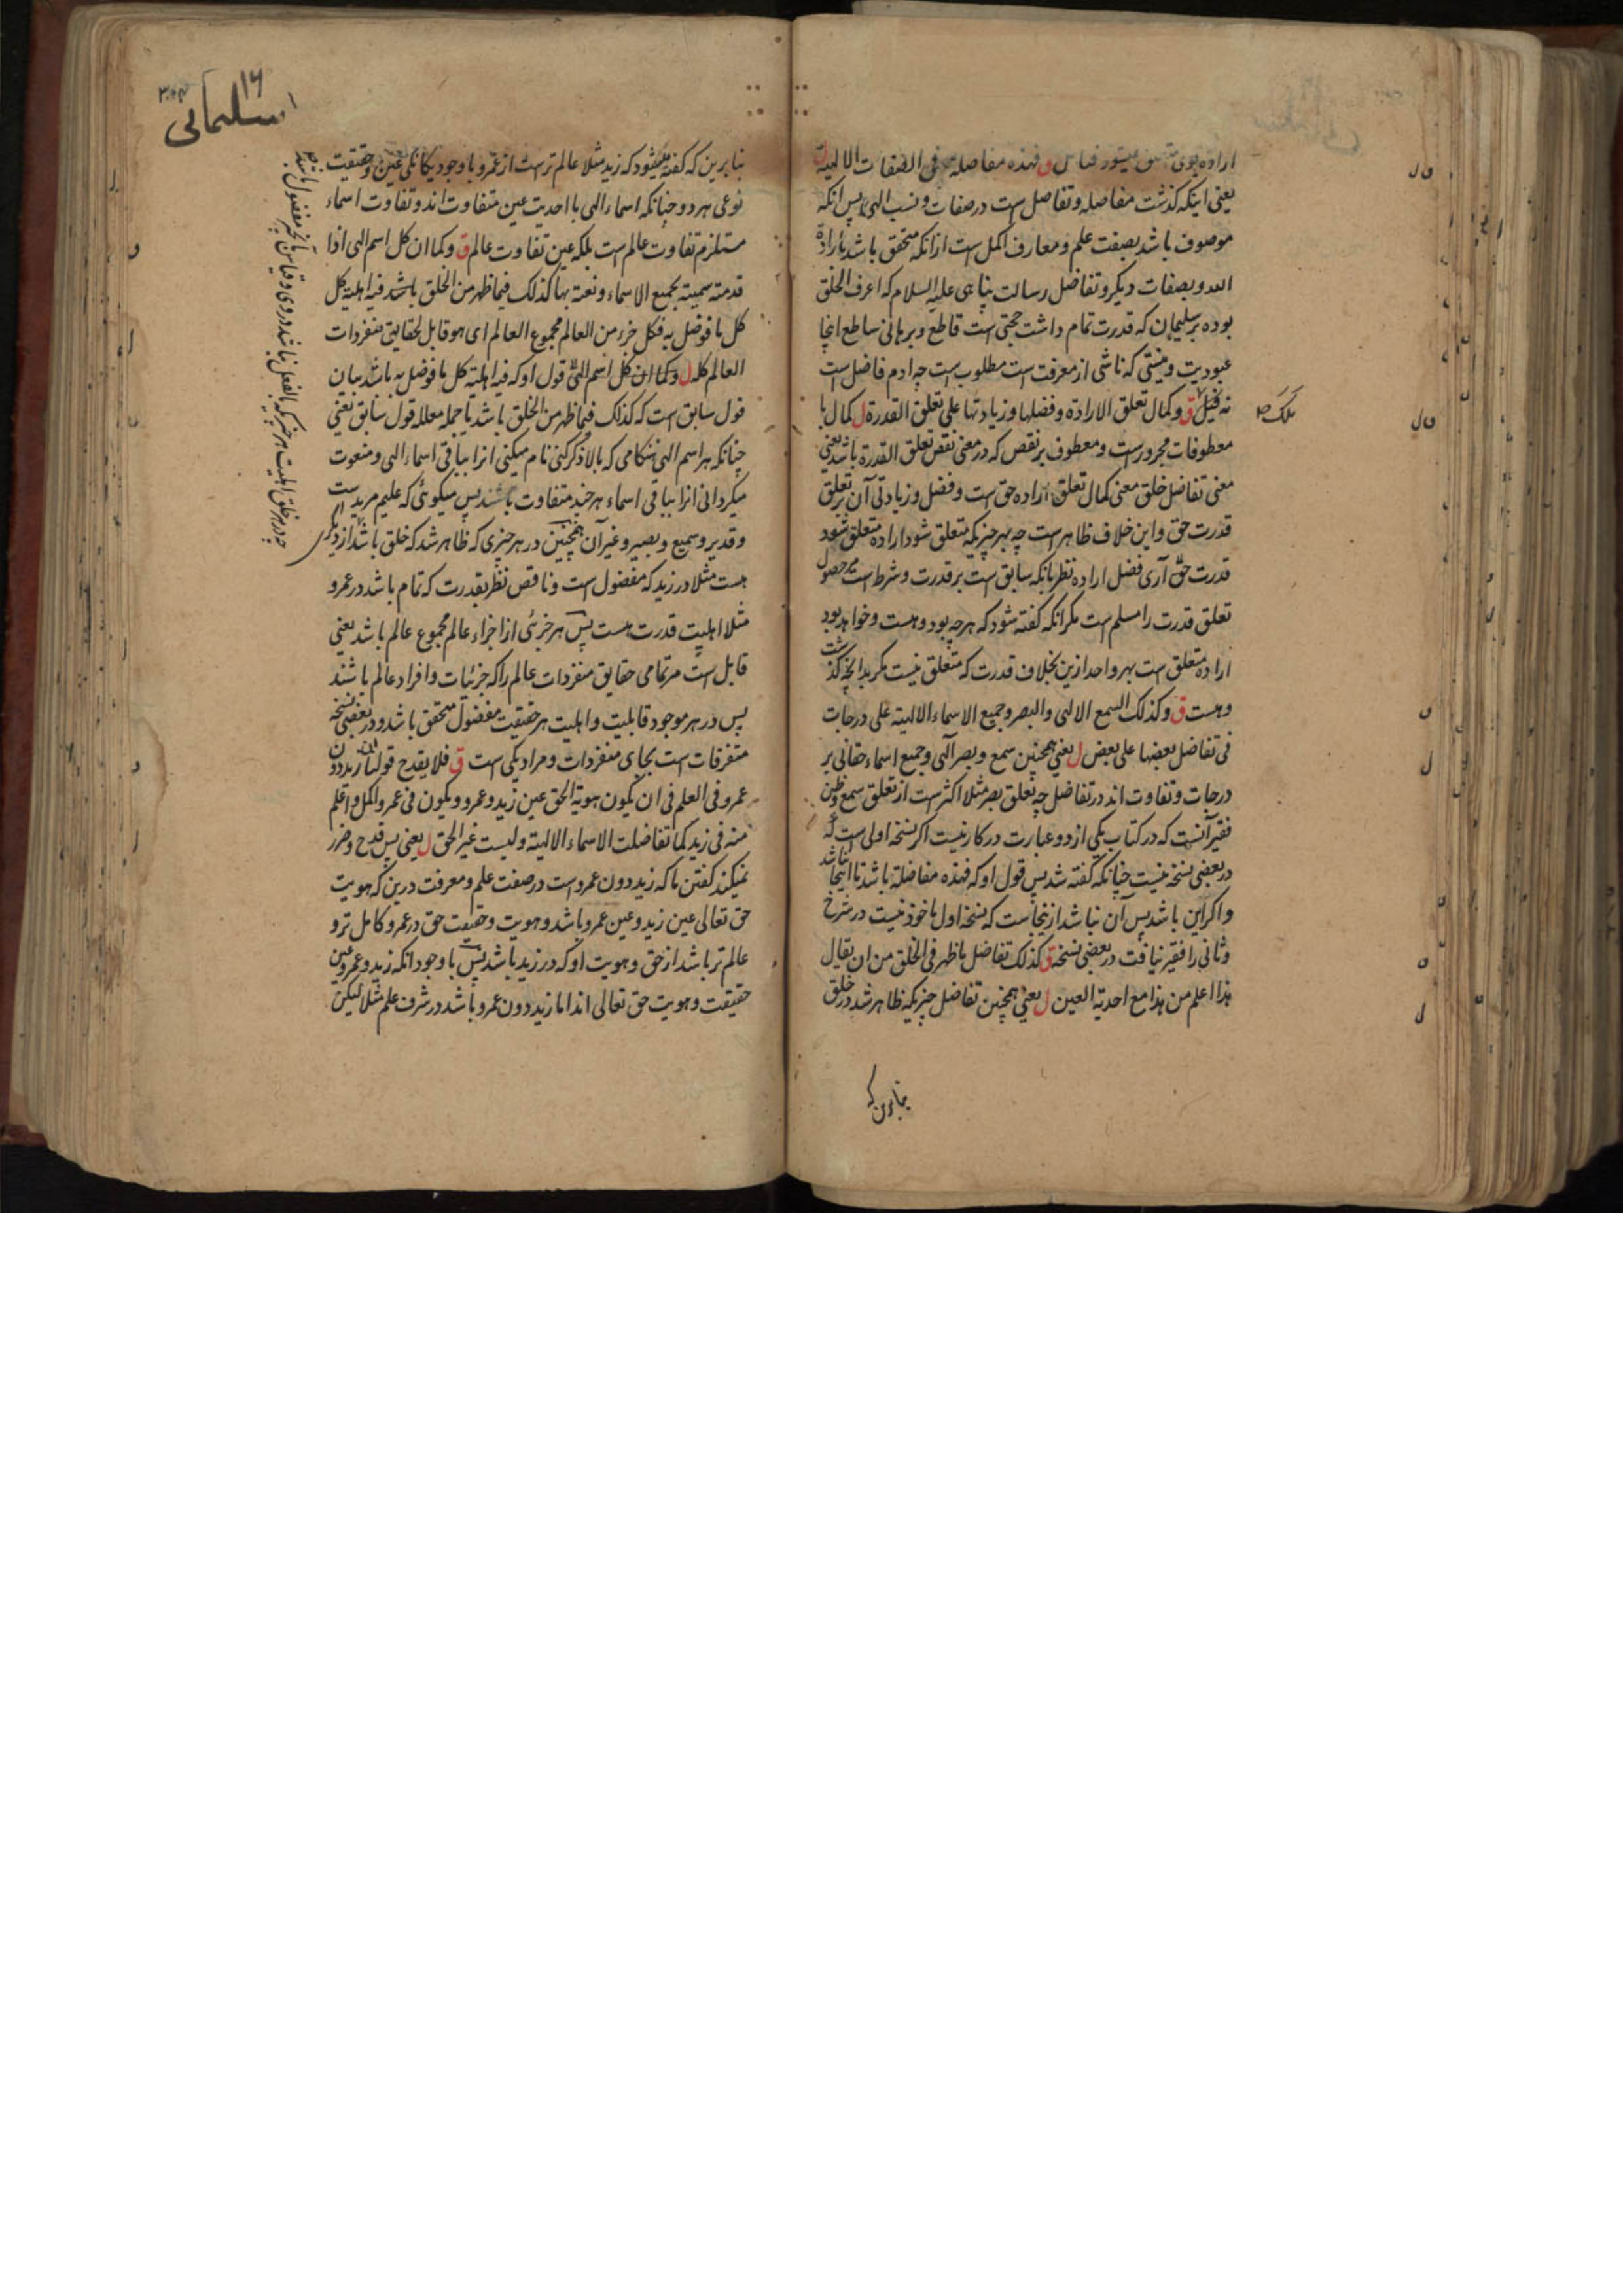 یعنی اینکه گذشت مفاضله و تفاضل است در صفات و نسب الهی پس انکه
موصوف باشد بصفت علم و معارف اکمل است از انکه متحقق باشد بارادة
و بصفات دیگر و تفاضل رسالت پناهی علیه السلام که اعرف الخلق
بوده بر سلیمان که قدرت تمام داشت حجتی است قاطع و برهانی ساطع اینجا
عبودیت و نیستی که ناشی از معرفت است مطلوب است چه ادم فاضل است
ملک
ق و کمال تعلق الارادة و فضلها و زیادتها علی تعلق القدرة ل کمال با
معطوفات مجرورست و معطوف بر نقص که در معنی نقص تعلق القدرة باشد یعنی
معنی تفاضل خلق معنی کمال تعلق اراده حق است و فضل و زیادتی آن بر تعلق
قدرت حق و این خلاف ظاهر است چه بهر چیزیکه متعلق شود اراده متعلق شود
قدرت حق آری فضل اراده نظر بانکه سابق است بر قدرت و شرط است بر حصول
تعلق قدرت را مسلم است مکر انکه کفته شود که هر چه بود و هست و خواهد بود
اراده متعلق است بهر واحد ازین بخلاف قدرت که متعلق نیست مکر بدانچه کذشت
و هست ق و کذلک السمع الالهی و البصر و جمیع الاسماء الالهیة علی درجات
فی تفاضل بعضها علی بعض ل یعنی همچنین سمع و بصر الهی و جمیع اسماء حقانی بر
درجات و تفاوت اند در تفاضل چه تعلق بصر مثلا اکثر است از تعلق سمع و ظن
فقیر آنست که در کتاب یکی از دو عبارت در کار نیست اکر نسخه اولی است که
در بعضی نسخه نیست چنانکه کفته شد پس قول او که فهذه مفاضلة باشد تا اینجا نباشد
و اکر این باشد پس آن نباشد از ینجاست که نسخه اول ماخوذ نیست در شرح
و ثانی را فقیر نیافت در بعضی نسخه ق کذلک تفاضل ما ظهر فی الخلق من ان یقال
هذا اعلم من هذا مع احدیة العین ل یعنی همچنین تفاضل چیزیکه ظاهر شد در خلق
بنابرین که
۱۶
سلیمانی
بنابرین که کفته میشود که زید مثلا عالم ترست از عمرو با وجود یکانکی عین و حقیقت
نوعی هر دو چنانکه اسماء الهی با احدیت عین متفاوت اند و تفاوت اسماء
مستلزم تفاوت عالم است بلکه عین تفاوت عالم ق و کما ان کل اسم الهی اذا
قدمته سمیته بجمیع الاسماء و نعته بها کذلک فیما ظهر من الخلق باشد فیه اهلیة کل
کل ما فوضل به فکل جزء من العالم مجموع العالم ای هو قابل لحقایق متفردات
العالم کله ل و کما ان کل اسم الهی قول او که فیه اهلیة کل ما فوضل به باشد بیان
قول سابق است که کذلک فیما ظهر من الخلق باشد یا جمله معلله قول سابق یعنی
چنانکه هر اسم الهی هنکامی که بالا ذکر کنی نام میکنی انرا بباقی اسماء الهی و منعوت
میکردانی انرا بباقی اسماء هر چند متفاوت باشند پس میکوئی که علیم مرید است
و قدیر و سمیع و بصیر و غیر آن همچنین در هر چیزی که ظاهر شد که خلق باشد از دیکری
هست مثلا در زید که مفضول است و ناقص نظر بقدرت که تمام باشد در عمرو
مثلا اهلیت قدرت هست پس هر جزئی از اجزاء عالم مجموع عالم باشد یعنی
قابل است مر تمامی حقایق متفردات عالم را که جزئیات و افراد عالم باشند
پس در هر موجود قابلیت و اهلیت هر حقیقت مفضول متحقق باشد و در بعضی نسخه
متفرقات است بجای متفردات و مراد یکی است ق فلا یقدح قولنا ان زیدا دون
عمرو فی العلم فی ان یکون هویة الحق عین زید و عمرو و یکون فی عمرو اکمل و اعلم
منه فی زید کما تفاضلت الاسماء الالهیة و لیست غیر الحق ل یعنی پس قدح و ضرر
نمیکند کفتن ما که زید دون عمرو است در صفت علم و معرفت درین که هویت
حق تعالی عین زید و عین عمرو باشد و هویت و حقیقت حق در عمرو کامل تر و
عالم تر باشد از حق و هویت او که در زید باشد پس با وجود انکه زید و عمرو عین
حقیقت و هویت حق تعالی اند اما زید دون عمرو باشد در شرف علم مثلا لیکن